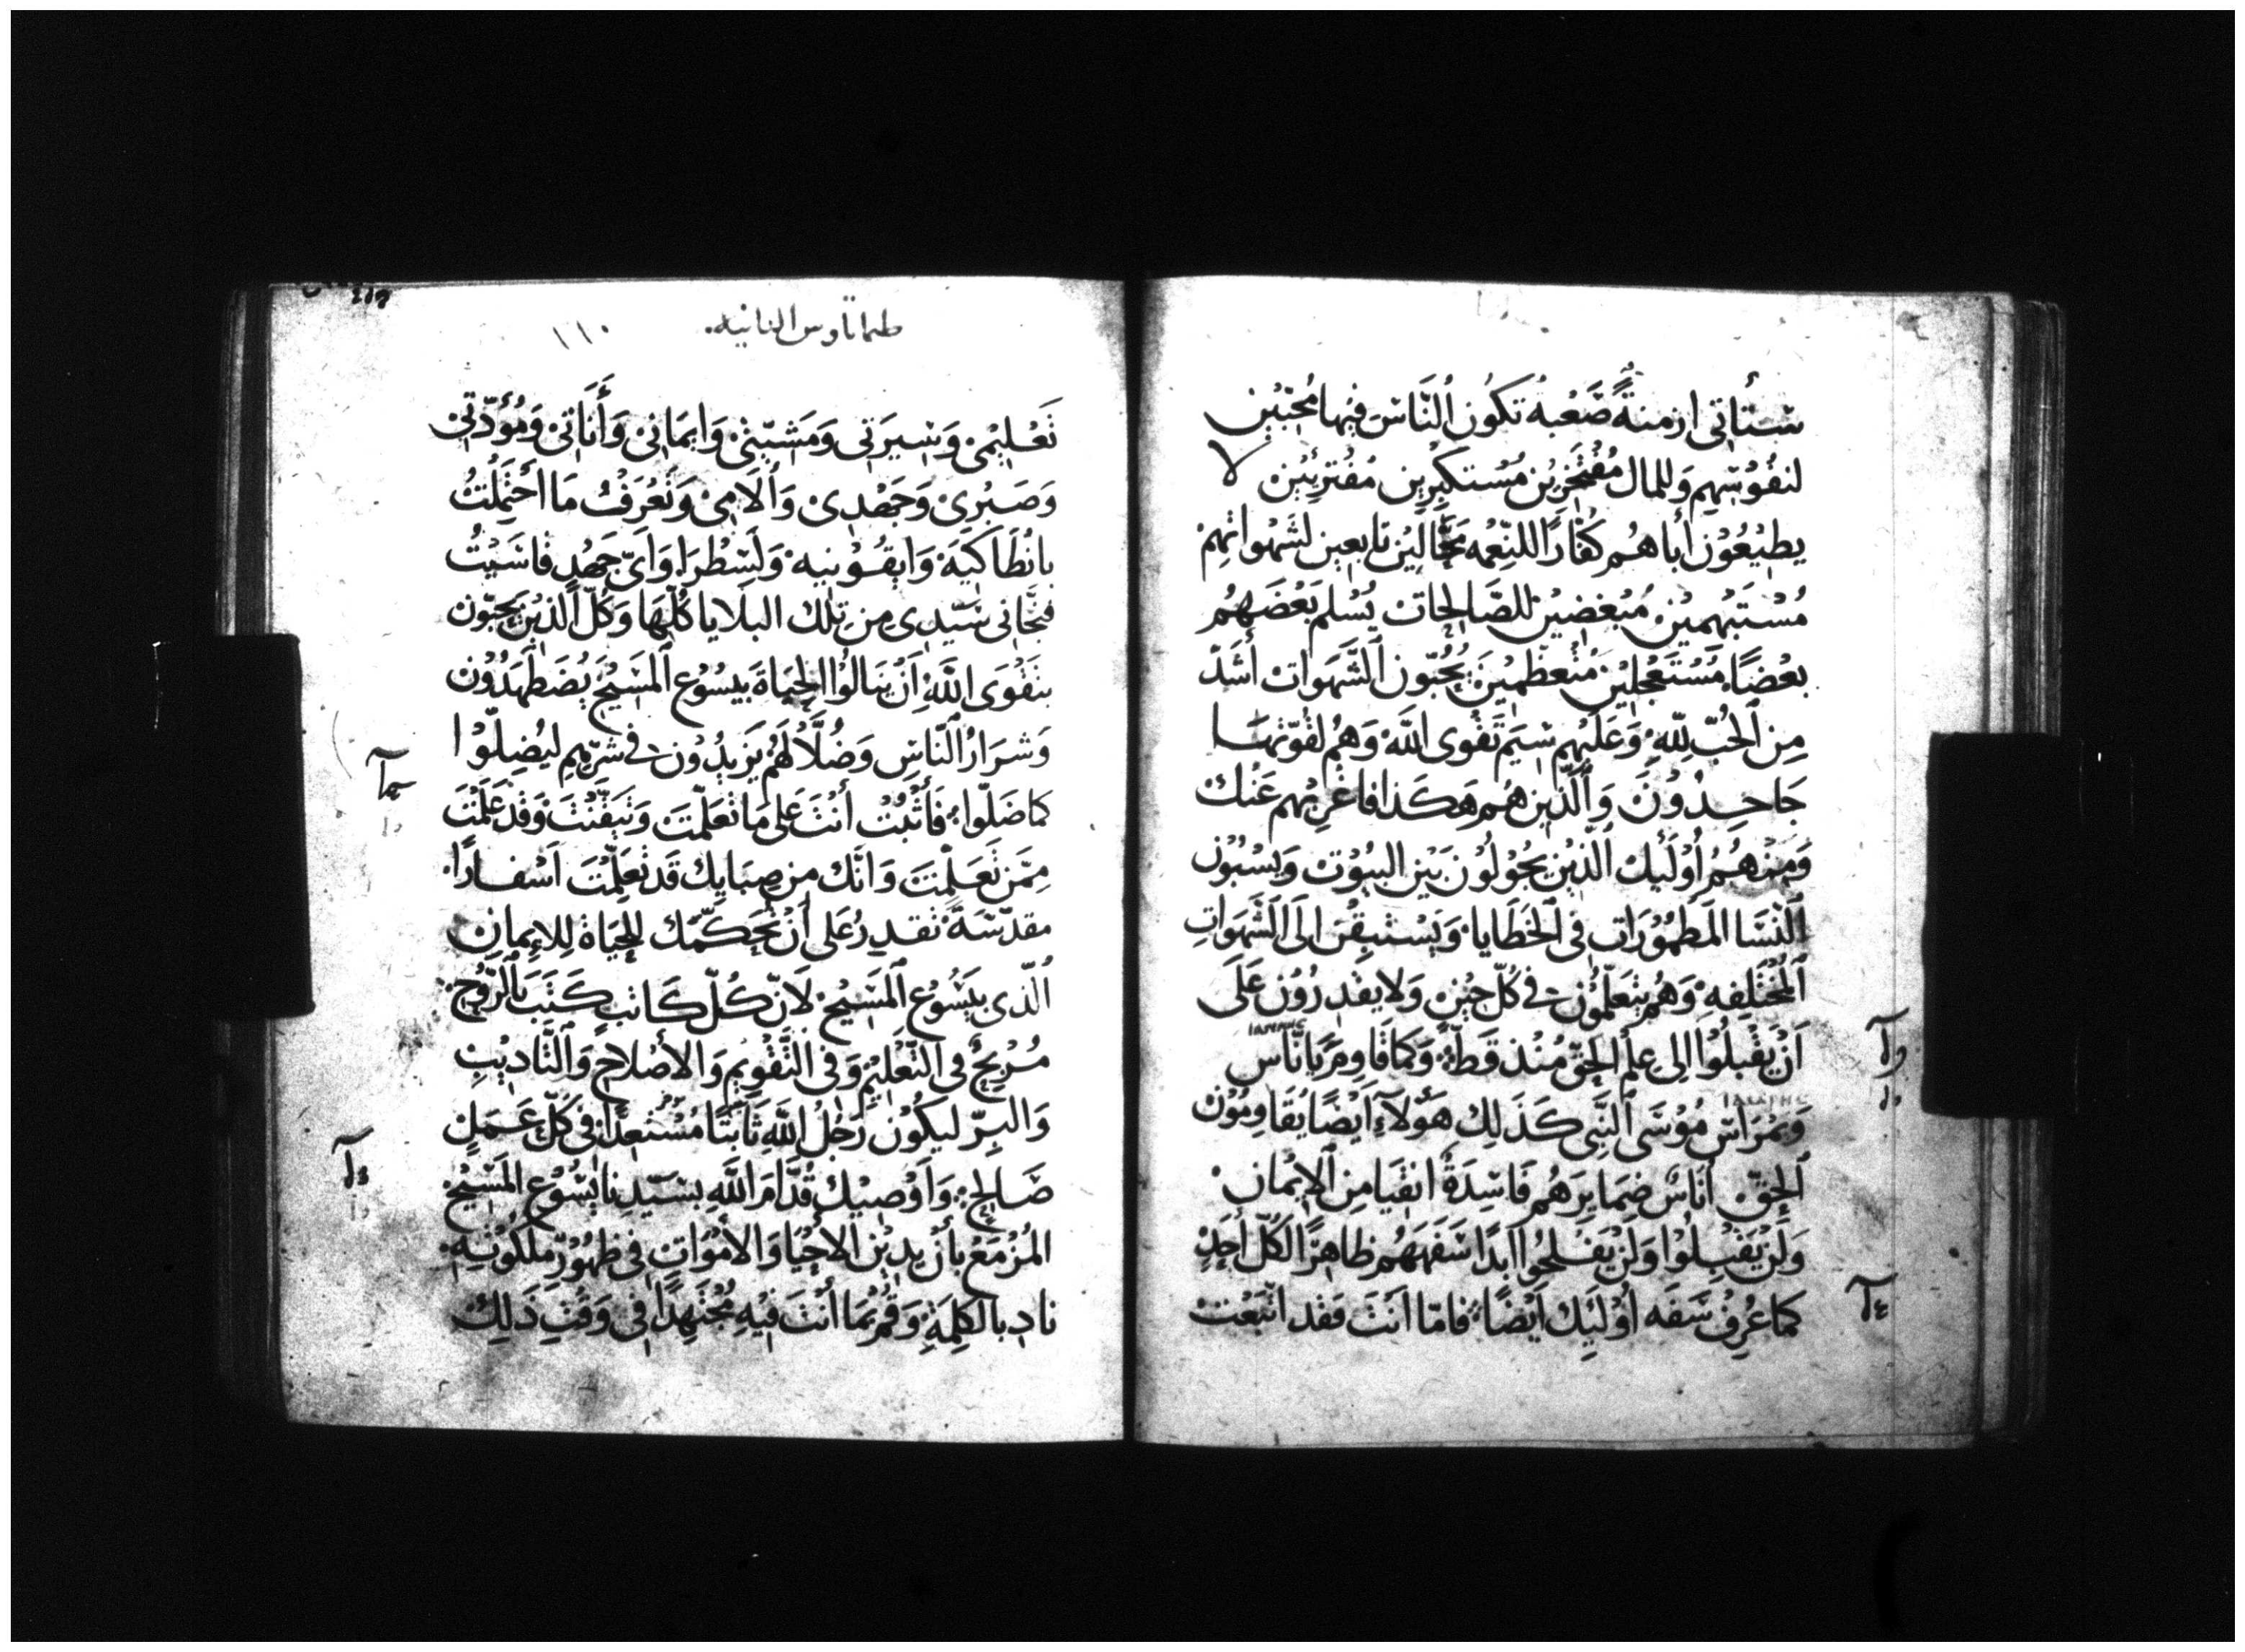 ستأتى ازمنةً صَعْبةُ تكون اُلنّاسَ فيها مُحبّين
لنفُوسِهِم وَللمال مُفْتَخرين مُسْتكبرين مُفْتَرئين لا
يطيْعُوْن أباهُم كفّارًا للنّعْمه محّالين تابعين لشهواتهمْ
مُسْتَبهمين مُبغضين للصَّالحات يُسْلم بَعْضهُم
بعْضًا مُسْتَعْجلين مُتْعظّمين يُحبّون اُلشَّهوات أَشَدّ
مِن اُلحُبّ للّهِ وَعَليهم سيَم تَقْوى الله وَهُم لقوّتها
جَاحِدُوْنَ وَاُلّذين هُم هَكذا فاغْربهم عَنْك
وَمنْهُم أُوْلَئِك الّذين يجُوْلُوْن بَيْن البيُوْت وَيسْبُوْن
النّسَا المَطمُوْرَات فى الخَطَايا وَيَسْتبِقْن الَى الشَّهَوَاتِ
المُخْتَلِفهِ وَهُم يتَعَلّمُون فى كلّ حِيْن وَلا يقدِرُوْن عَلَى
اَنْ يَقْبلُوْا الى عِلم الحَقّ مُنْذ قَطّ وَكمَا قَاوَمَ يانّاس
وَيمْرَاس مُوْسَى النّبى كذَلِك هَؤلاءِ اَيْضًا يُقَاوِمُوْن
اُلحقّ اُنَاسٌ ضمَايرهُم فَاسِدَةٌ انفيَا مِن اُلاِيْمان
وَلَنْ يُقْبِلُوا وَلَنْ يَفْلحُوا ابدًا سَفَههُم ظَاهرًا لكُلّ أحَدٍ
كمَا عُرِفُ سَفَه أُوْلَئِك اَيْضًا فامّا اَنْتَ فقد اتّبعْت
طماتاوس الثانيه ١١٠
تَعْليْمى وَسيرَتى وَمَشيّتى وَايمَانى وَأَنَاتى وَمُؤدّتى
وَصَبْرى وَجَهْدِى وَألامِى وَتَعْرفُ مَا أحْتمَلْتُ
بانْطَاكيَة وَايقُوْنيه وَلَسْطرَا وَأىّ جَهْدٍ قاسَيْتُ
فنجَّانى سَيّدِى مِن تِلْك البلايا كُلّهَا وَكُلّ الّذِيْن يحِبّون
بتَقْوَى اللهِ اَنْ يَنَالُوْا الحَيَاةَ بيسُوْع المَسِيْح يُضطَهَدُوْن
وَشرَارُ اُلنّاسِ وَضُلَّالُهُم يَزيْدُوْن فى شرّهِم ليُضِلّوْا
كما ضَلّوا فَأثْبُتْ أنْتَ عَلى مَا تعَلّمْتَ وَتَيَقّنْتَ وَقدْ عَلمْتَ
مِمّن تَعَلّمْتَ وَانّك مِن صِبَايك قَد تَعَلّمْتَ اَسْفارًا
مقدّسَةً تقدِرُ عَلى أنْ تُحَكّمك للحيَاة لِلإيمانِ
الّذى بيَسُوْع المَسِيْح لانّ كُلّ كَاتبٍ كَتَبَ بالرّوْح
مُرْبحٌ فى التّعْليْم وَفى التّقْويم وَالأصْلاح وَالتّاديْبِ
وَالبِرّ ليكُوْن رَجُلُ اللهِ ثَابتًا مُسْتعِدًا فى كُلّ عَمَلٍ
صَالحٍ وَاُوْصِيْك قُدّامَ اللهِ بسَيّدِنا يسُوْع المَسِيْح
المُزْمَعْ بأنْ يدِيْن الأحْيَا وَالأمْوَاتِ فى ظهُوْر ملكُوْتِهِ
نادِ بالكلِمَةِ وَقُم بمَا أنْتَ فيْهِ مُجْتَهِدًا فى وَقْتِ ذَلِك